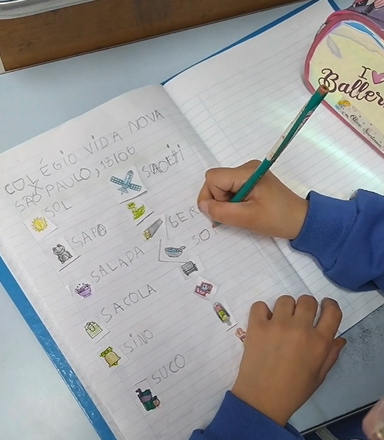 COLÉGIO VIDA NOVA
SÃO PAULO, 18/06
SOL
SAPO
SALADA
SO
SACOLA
SINO
SUCO
I
Baller